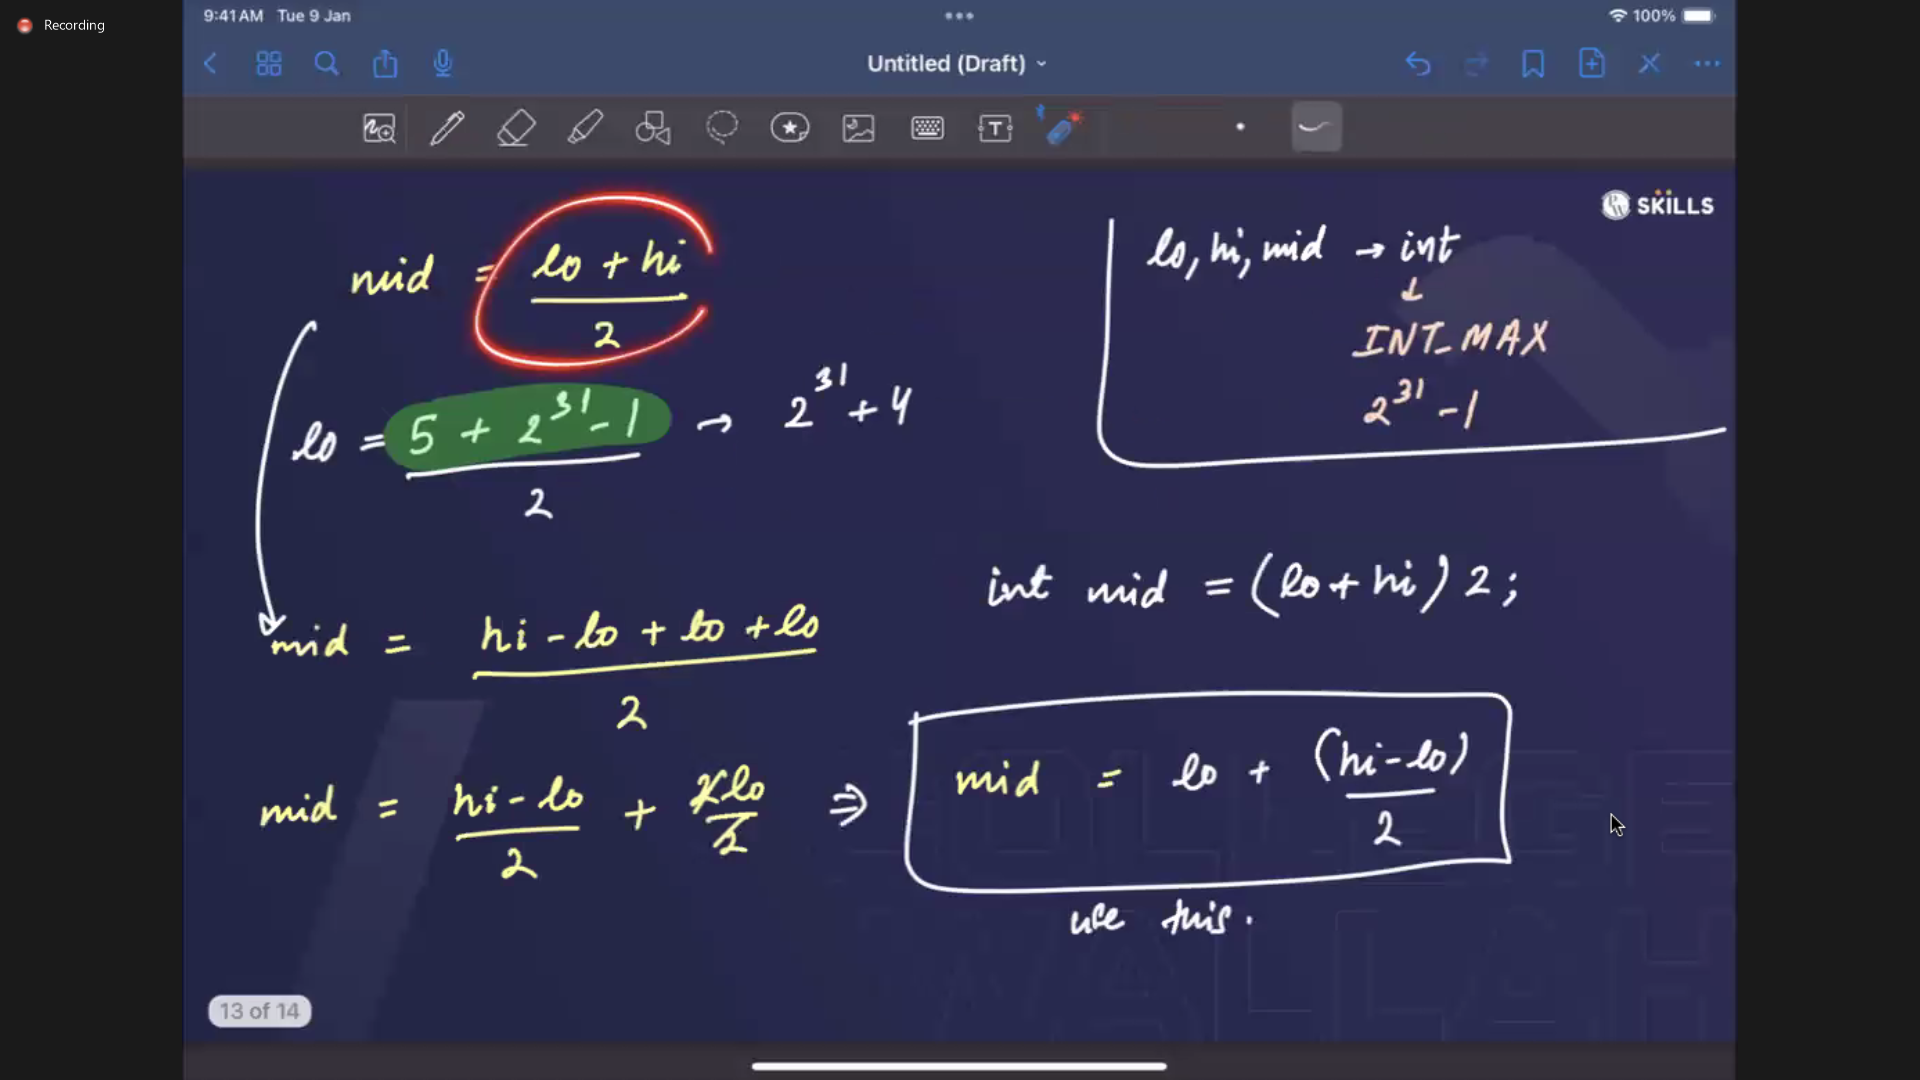 Recording
9:41 AM Tue 9 Jan
100%
Untitled (Draft)
SKILLS
mid = lo + hi / 2
lo, hi, mid → int
↓
INT_MAX
2^31 - 1
lo = 5 + 2^31 - 1 / 2 → 2^31 + 4
int mid = (lo + hi) 2;
mid = hi - lo + lo + lo / 2
mid = hi - lo / 2 + 2lo / 2 ⇒ mid = lo + (hi - lo) / 2
use this.
13 of 14